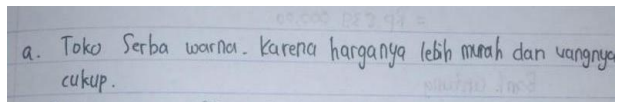 a. Toko Serba warna. Karena harganya lebih murah dan uangnya
cukup.